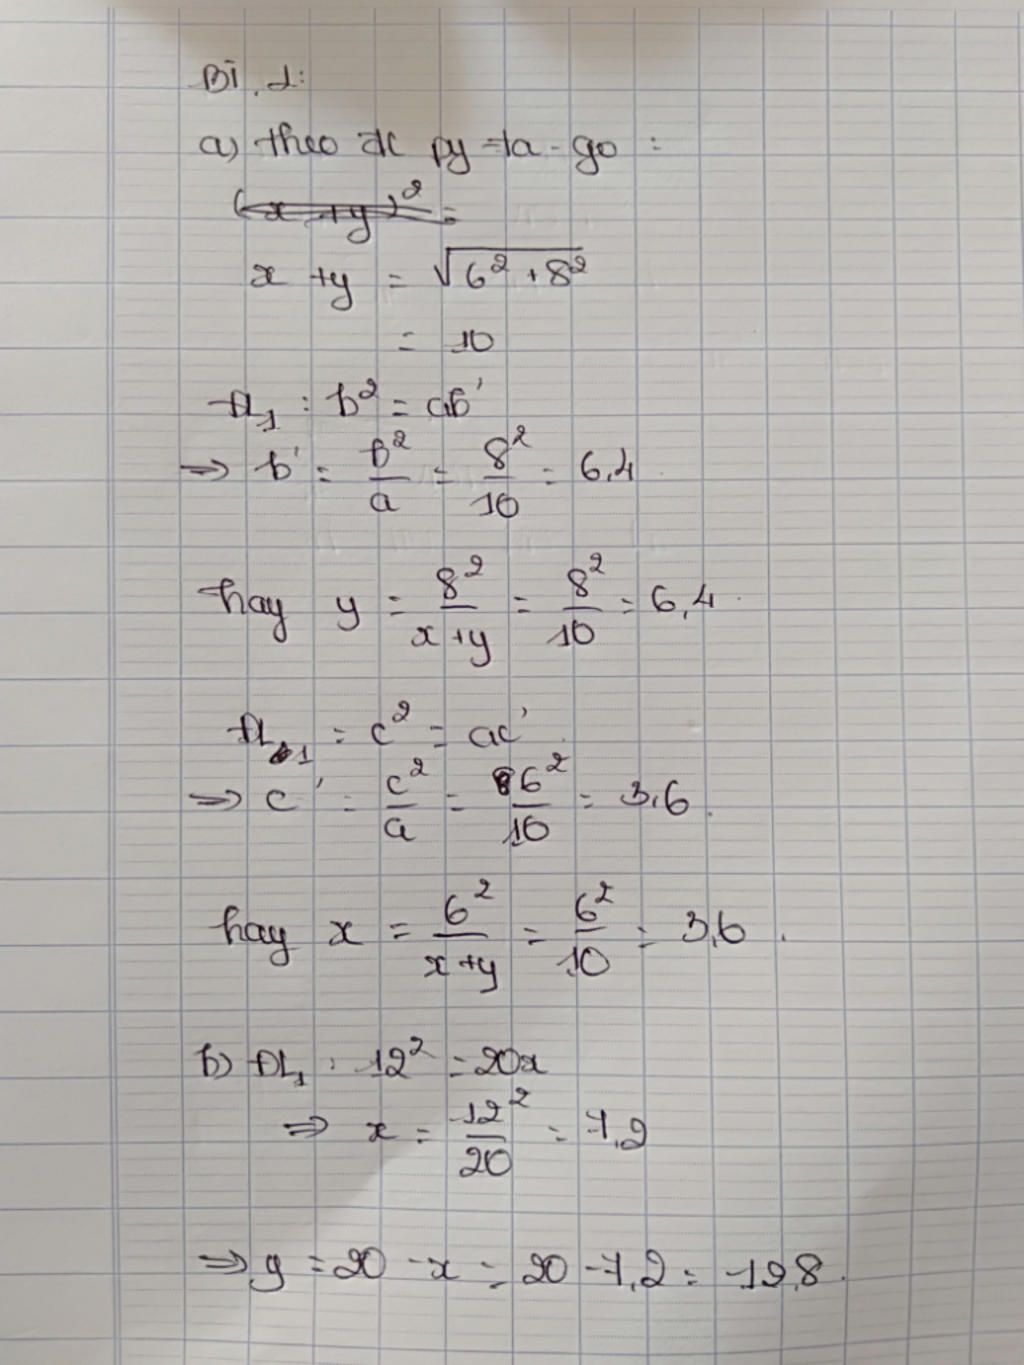 BT.1:
a) theo đl py-ta-go :
(x+y)² =
x + y = √(6² + 8²)
= 10
ĐL₁ : b² = ab'
⇒ b' = b²/a = 8²/10 = 6,4
hay y = 8²/(x+y) = 8²/10 = 6,4.
ĐL₁ : c² = ac'.
⇒ c' = c²/a = 6²/10 = 3,6.
hay x = 6²/(x+y) = 6²/10 = 3,6.
b) ĐL₁ : 12² = 20x
⇒ x = 12²/20 = 7,2
⇒ y = 20 - x = 20 - 7,2 = 12,8.